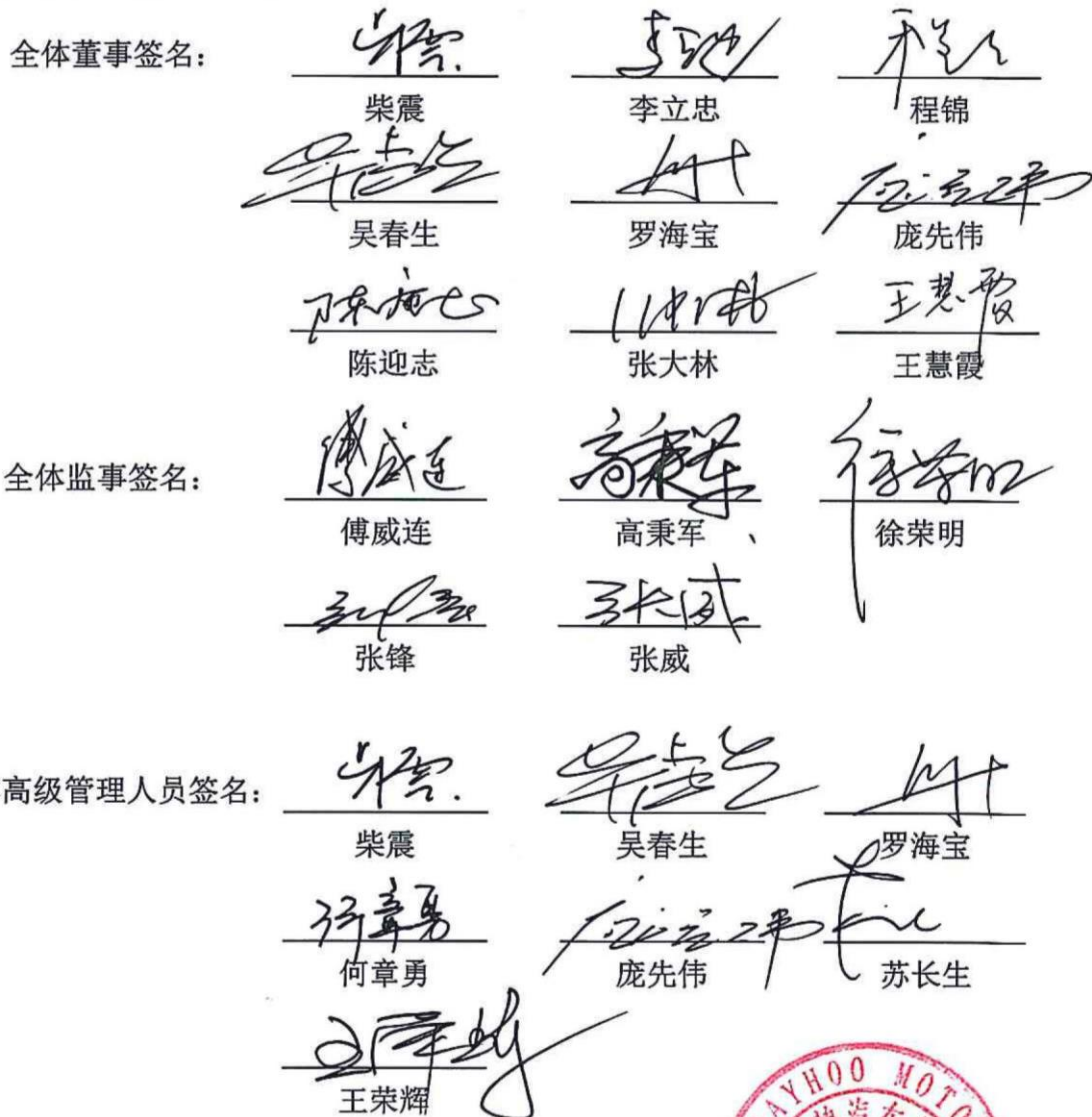 全体董事签名：
柴震 李立忠 程锦
吴春生 罗海宝 庞先伟
陈迎志 张大林 王慧霞
全体监事签名：
傅威连 高秉军 徐荣明
张锋 张威
高级管理人员签名：
柴震 吴春生 罗海宝
何章勇 庞先伟 苏长生
王荣辉
AYHOO MOTO
汽车